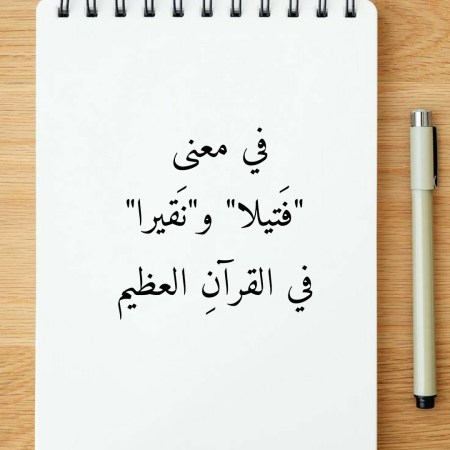 في معنى
"فَتيلا" و"نَقيرا"
في القرآنِ العظيم